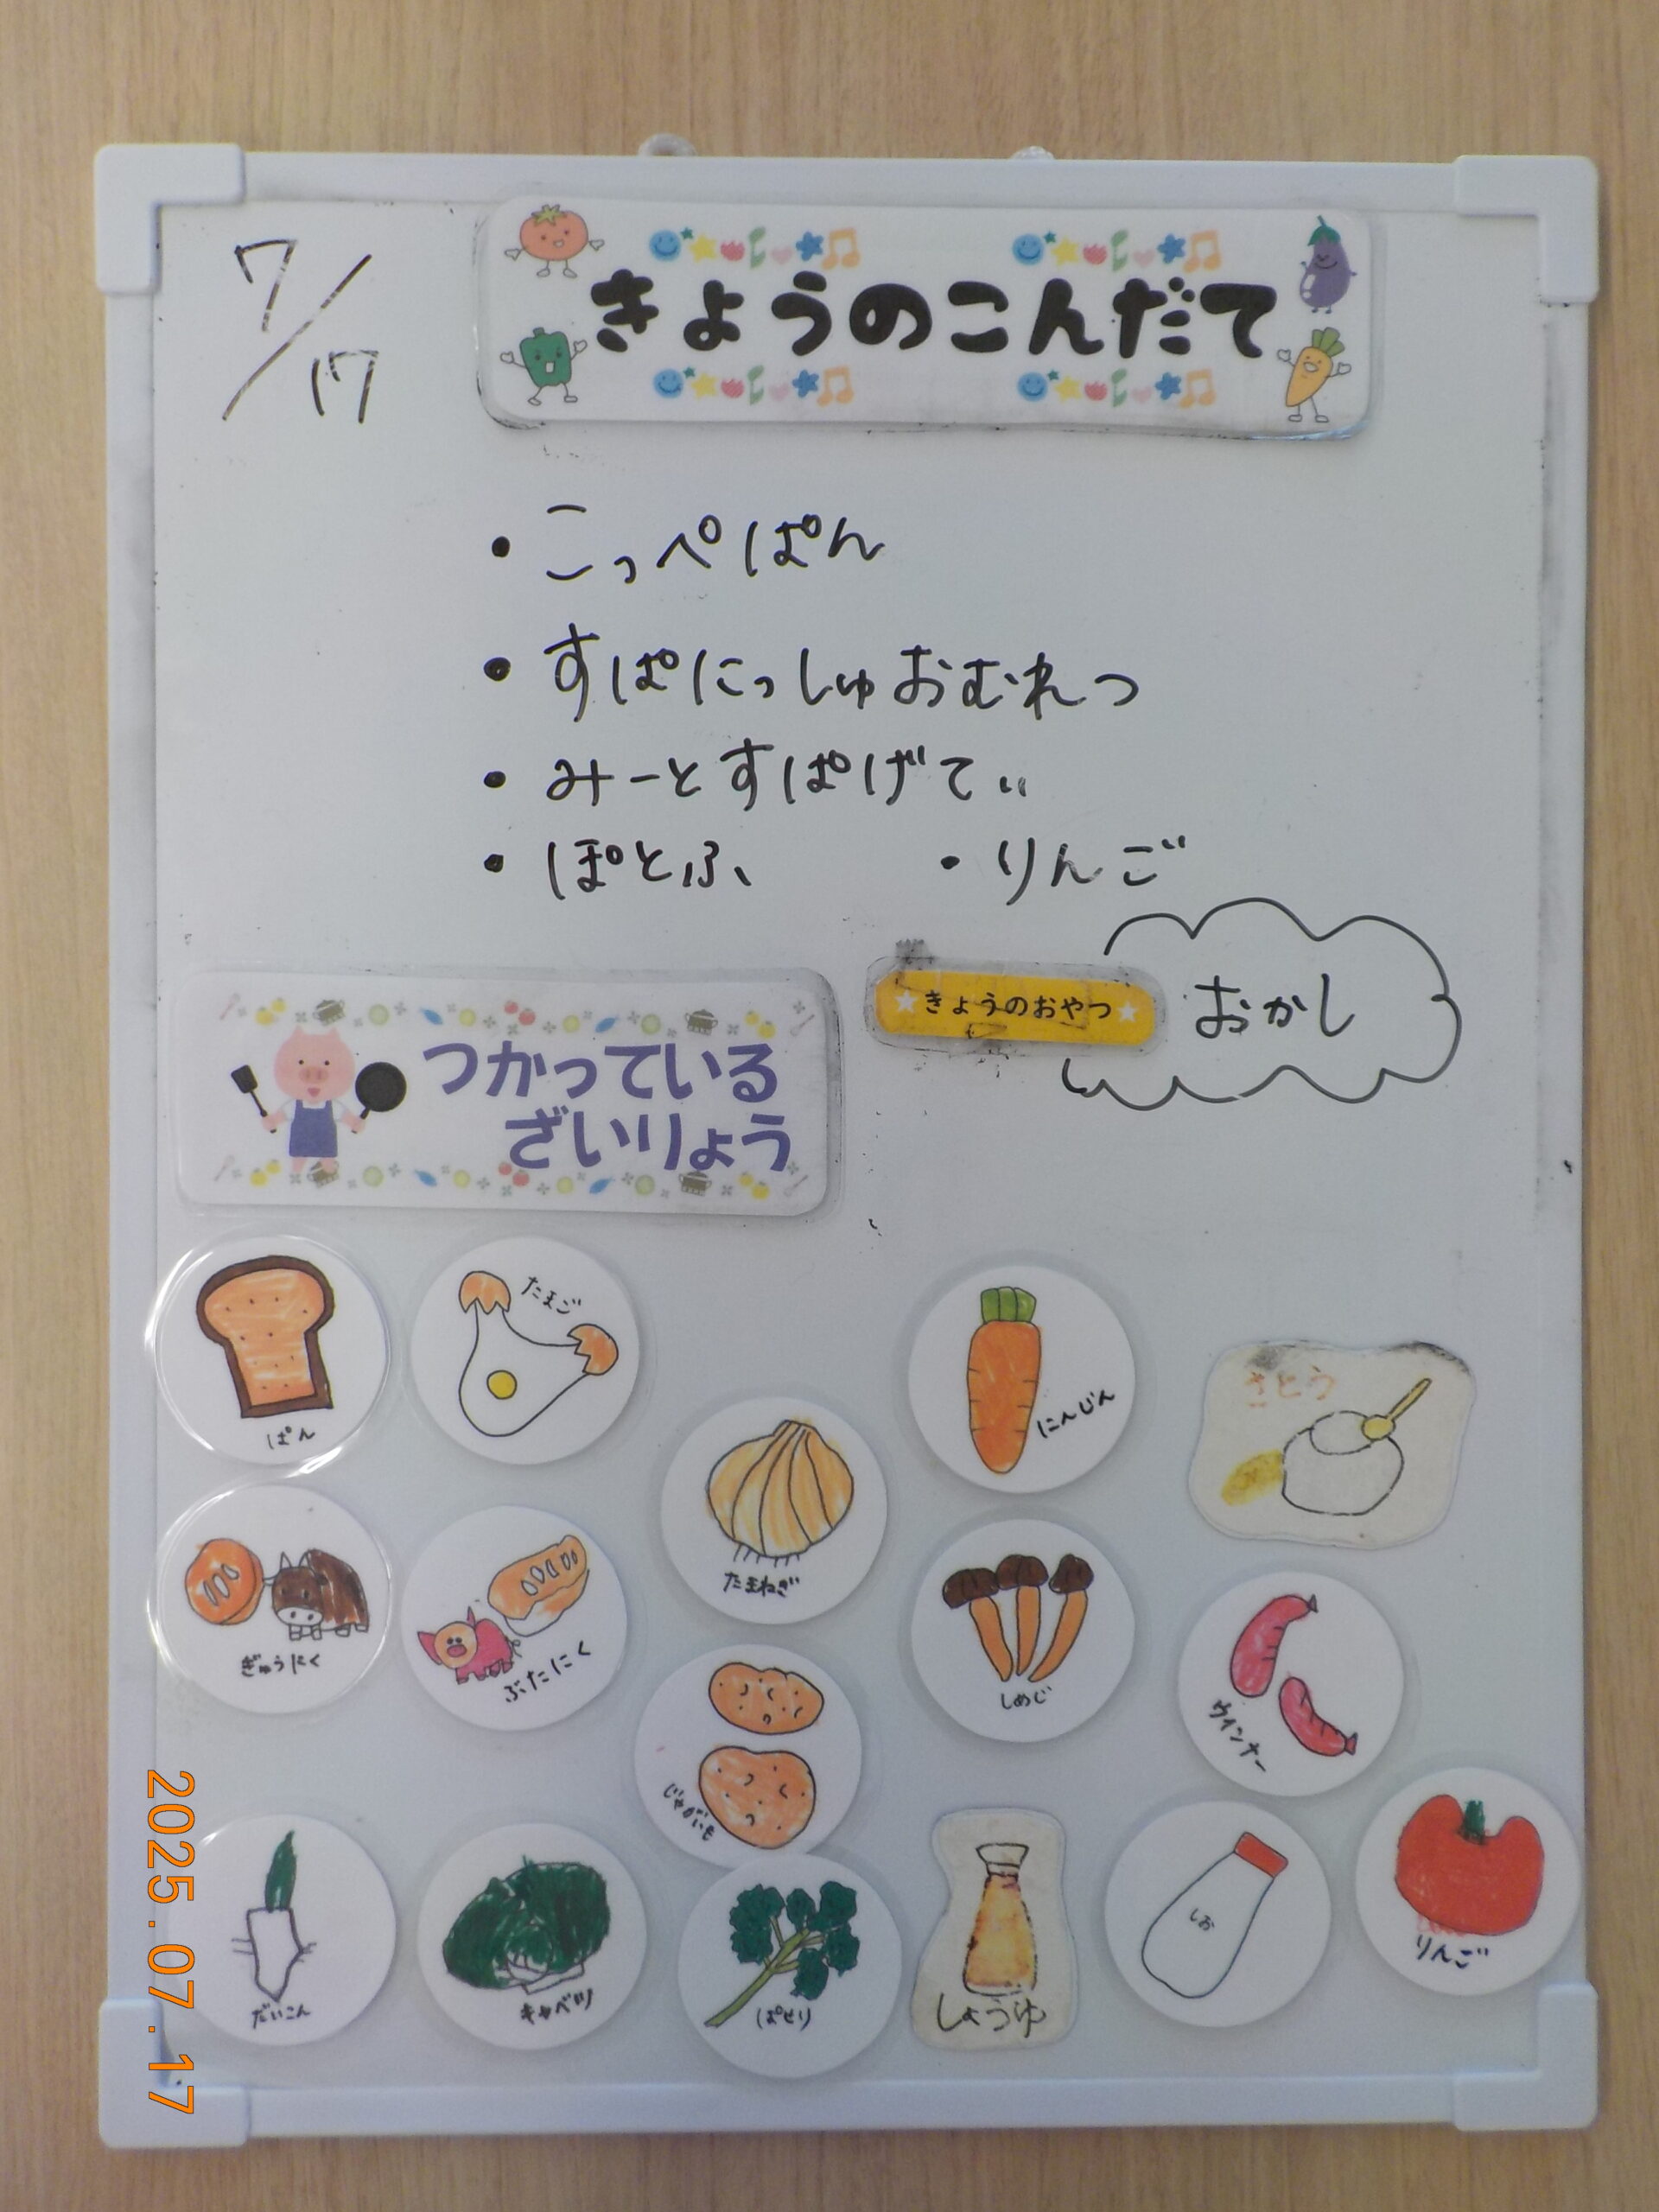 7/17
きょうのこんだて
・こっぺぱん
・すぱにっしゅおむれつ
・みーとすぱげてぃ
・ぽとふ ・りんご
★きょうのおやつ★ おかし
つかっている
ざいりょう
ぱん
たまご
たまねぎ
にんじん
さとう
ぎゅうにく
ぶたにく
じゃがいも
しめじ
ウインナー
だいこん
キャベツ
ぱせり
しょうゆ
しお
りんご
2025.07.17